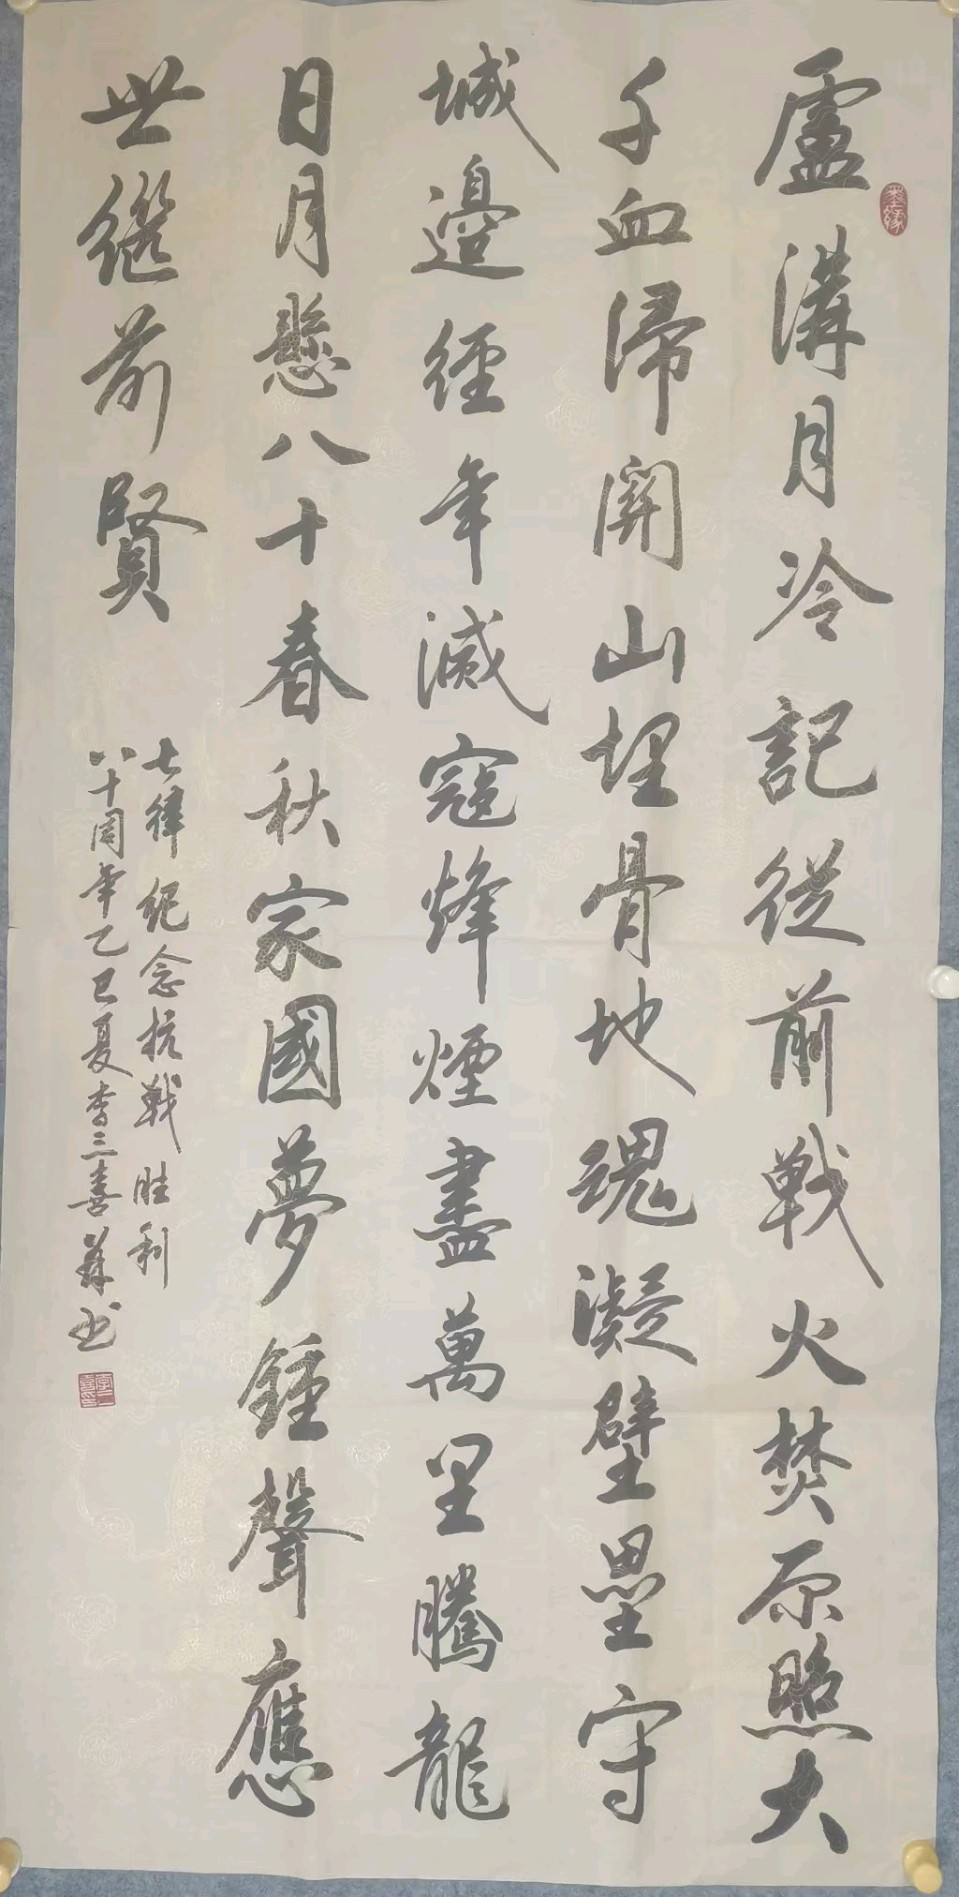 盧溝月冷記從前戰火焚原照大
千血沸關山埋骨地魂凝壁壘守
城邊經年滅寇烽煙盡萬里騰龍
日月懸八十春秋家國夢鐘聲應
世繼前賢
七律 纪念抗戰胜利
八十周年乙巳夏李三喜并书